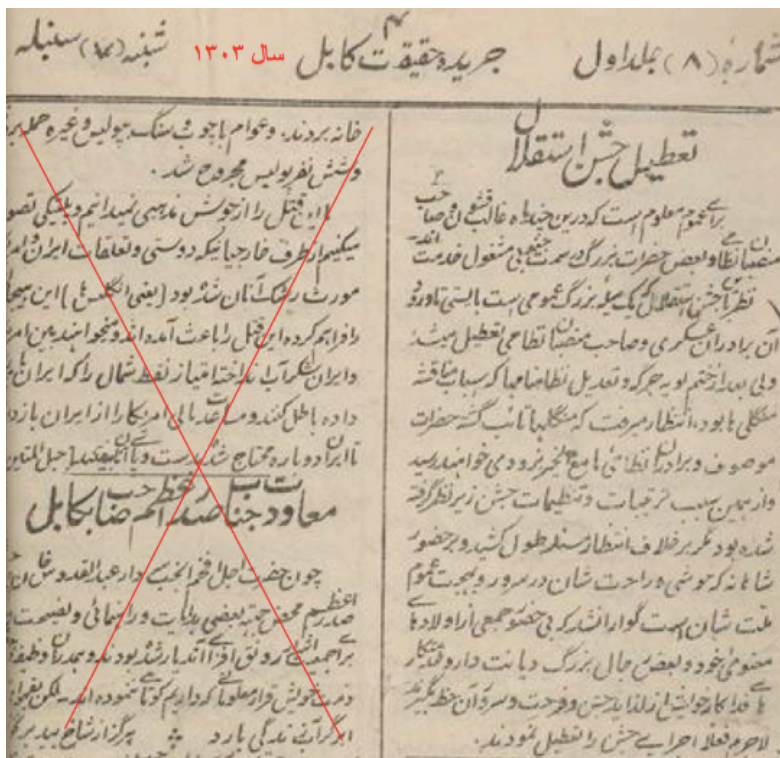 شمارهٔ (۸) جلد اول
جریدهٔ حقیقت کابل
سال ۱۳۰۳
شنبه (۱۷) سنبله
تعطیل جشن استقلال
برای عموم معلوم است که درین چند ماه غالب قشون و صاحب
منصبان نظامی و بعض حضرات بزرگ در سمت جنوبی مشغول خدمت اند
نظر باین جشن استقلال که یک میله بزرگ عمومی است بایستی تا ورود
آن برادران عسکری و صاحب منصبان نظامی تعطیل میشد
ولی بعد از ختم لویه جرگه و تعدیل نظامنامها که سباب مناقشه
منگلی ها بود، انتظار میرفت که منگلیها تائب گشته حضرات
موصوف و برادران نظامی ما مع الخیر بزودی خواهند رسید
و از همین سبب ترتیبات و تنظیمات جشن زیر نظر گرفته
شده بود مگر بر خلاف انتظار مسئله طول کشید و بر حضور
شاهانه که خوشی و راحت شان در سرور و بهجت عموم
ملت شان است گوارا نشد که بی حضور جمعی از اولاد های
معنوی خود و بعض رجال بزرگ دیانت دار و فداکار
از لذاید جشن و فرحت و سرور آن حظ بگیرند
لاجرم فعلا اجرای جشن را تعطیل نمودند.
خانه بردند. و عوام با چوب و سنگ بپولیس و غیره حمله
و شش نفر پولیس مجروح شد.
ما این قتل را از جوش مذهبی نمیدانیم و پلتیکی
میکنیم از طرف خارجیانیکه دوستی و تعلقات ایران و
مورث رشک آنان شده بود (یعنی انگلیس ها) این
را فراهم کرده این قتل را باعث آمده اند و میخواهند بین
و ایران شکر آب انداخته امتیاز نفط شمال را که ایران
داده باطل کنند و مساعدت مالی امریکا را از ایران باز
تا ایران دوباره محتاج شده دست و پای آن بیفتد
معاودت جناب صدر اعظم صاحب بکابل
چون حضرت اجل افخم سردار عبدالقدوس خان
صدر اعظم محض بعضی هدایت و راهنمائی و نصیحت
رونق افزای آنجا شده بودند و وظیفه
ذمت خویش قرار معلوماتی که داریم کوتاهی ننموده اند. لکن بفحوای
ابر گر آب زندگی بارد ٭ هرگز از شاخ بید بر